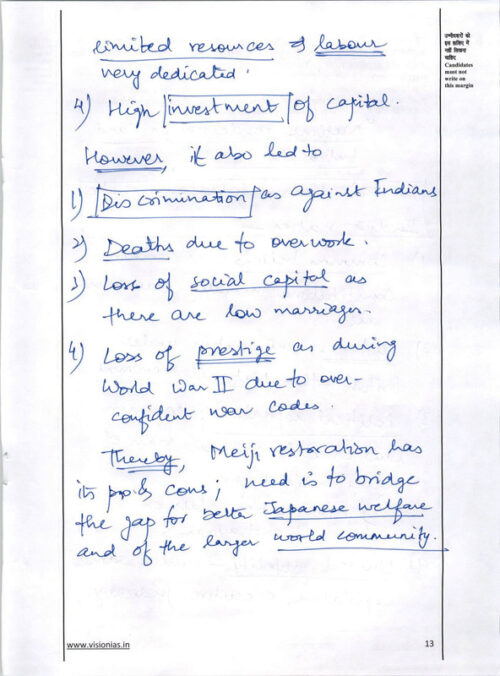 limited resources & labour
very dedicated.
4) High investment of capital.
However, it also led to
1) Discrimination as against Indians
2) Deaths due to overwork.
3) Loss of social capital as
there are low marriages.
4) Loss of prestige as during
World War II due to over-
confident war codes.
Thereby, Meiji restoration has
its pros & cons; need is to bridge
the gap for better Japanese welfare
and of the larger world community.
उम्मीदवारों को
इस हाशिए में
नहीं लिखना
चाहिए
Candidates
must not
write on
this margin
www.visionias.in
13